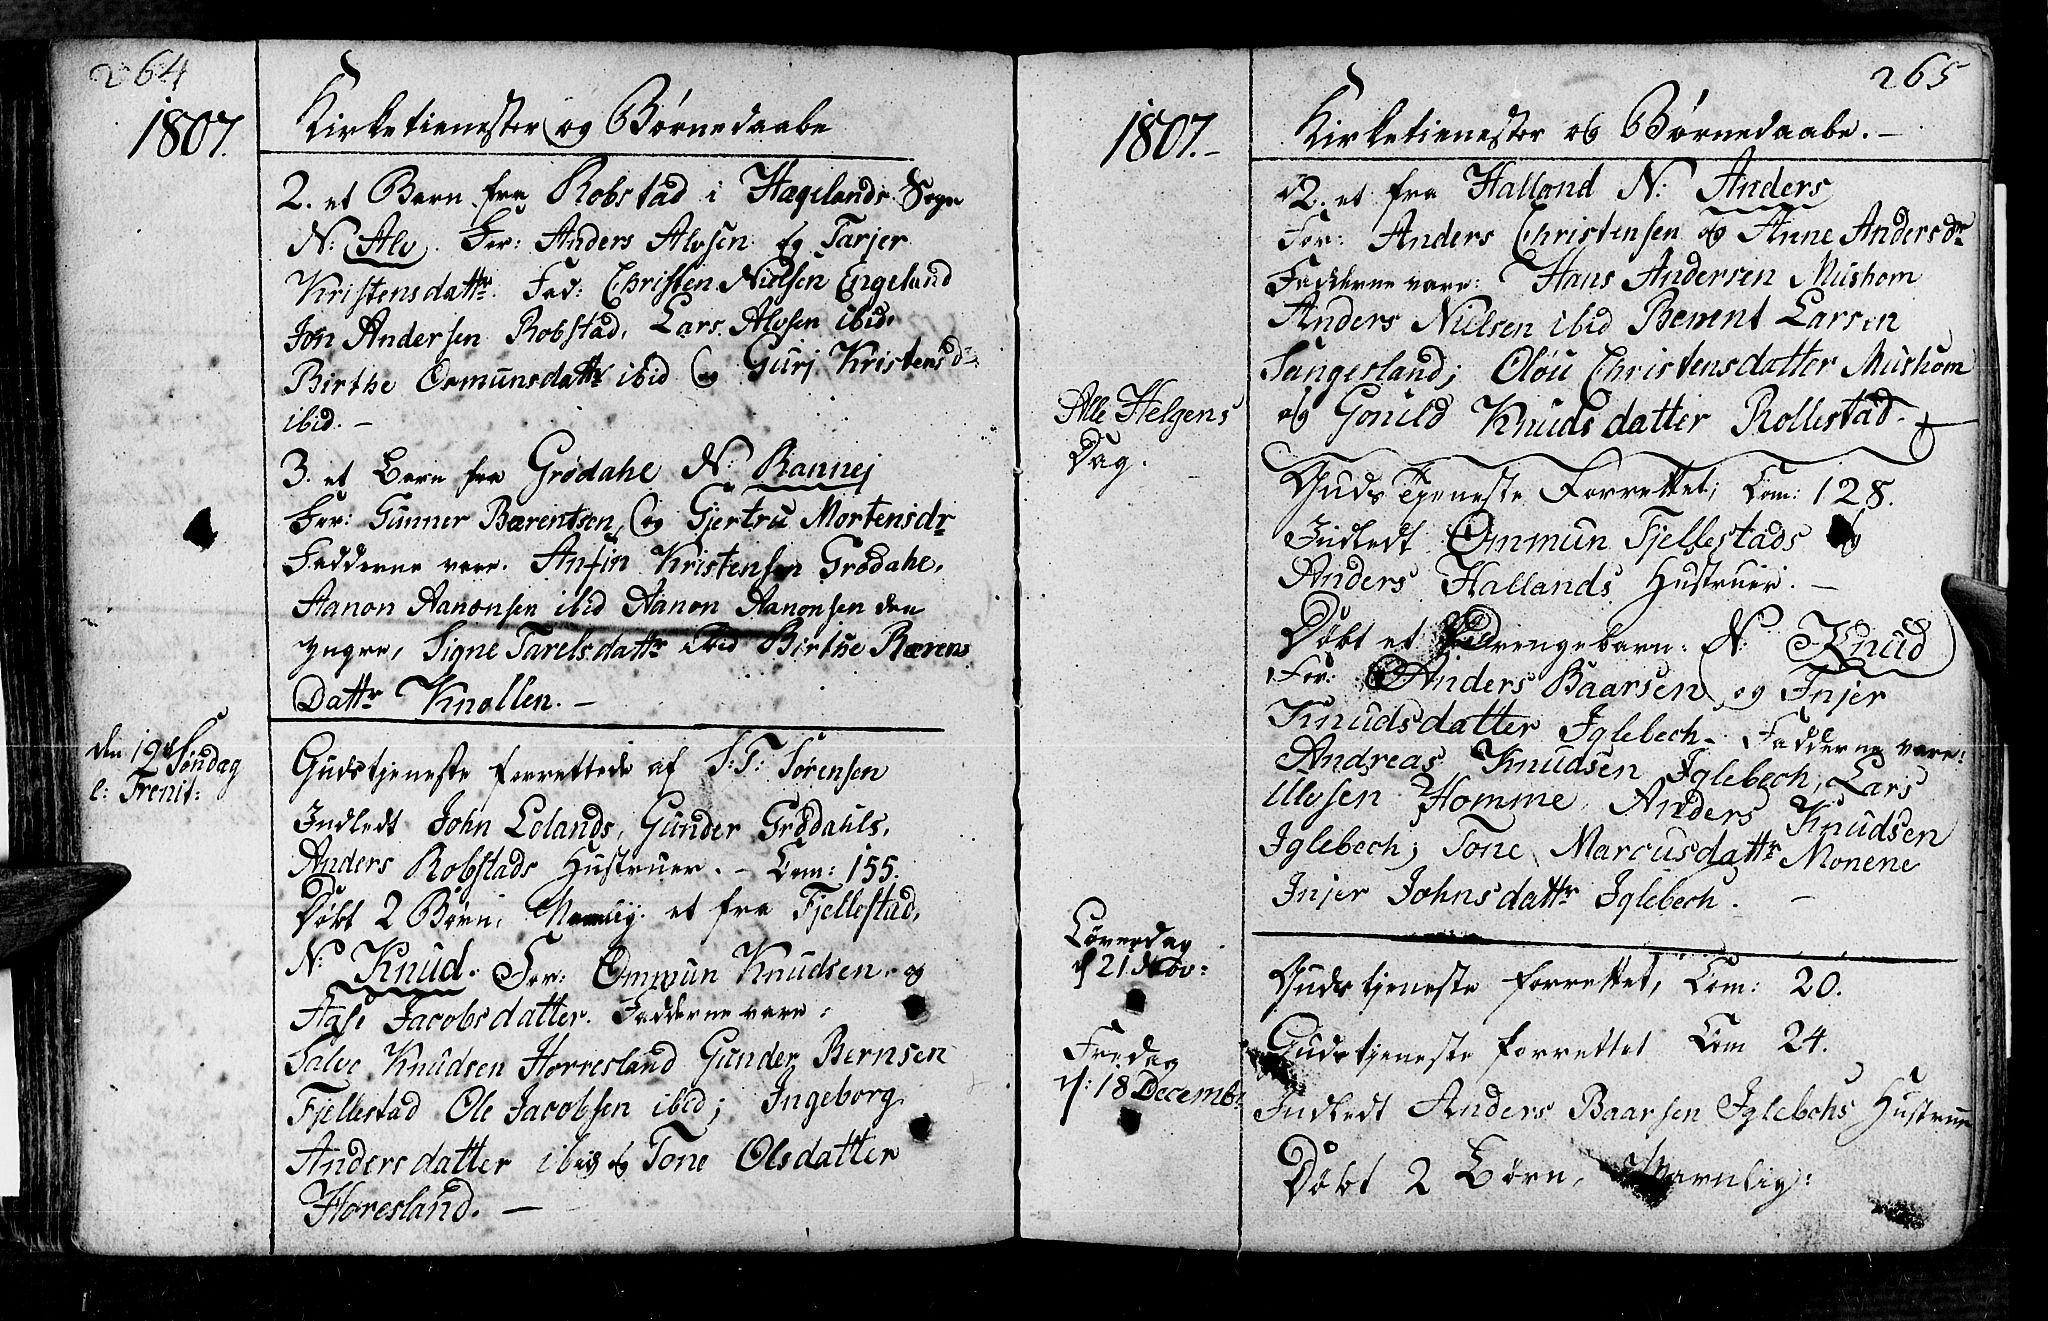 264
1807.
Kirketienester og Børnedaabe
2. et Barn fra Robstad i Hægelands Sogn
N: Alv. For: Anders Alvsen og Tarjer
Kristensdattr. Fad: Christen Nielsen Engeland
Jon Andersen Robstad, Lars Alvsen ibid,
Birthe Osmunsdattr ibid og Gurj Kristensdr
ibid. –
3. et Barn fra Grødahe N: Rannej
For: Gunner Bærentsen, og Gjertru Mortensdr
Fadderne vare. Anfin Kristensen Grødahe,
Aanon Aanonsen ibid Aanon Aanonsen den
yngre, Signe Tarelsdattr ibid Birthe Bærens
Dattr Knollen. –
den 19de Søndag
e: Trenit:
Gudstjeneste forrettede af S:T: Sørensen
Indledt John Eolands, Gunder Grødahls,
Anders Robstads Hustruer. – Com: 155.
Døbt 2 Børn, Namlig: et fra Fjellestad,
N: Knud. For: Ommun Knudsen og
Aase Jacobsdatter. Fadderne vare:
Salve Knudsen Horresland Gunder Bernsen
Fjellestad Ole Jacobsen ibid; Ingeborg
Andersdatter ibid og Tone Olsdatter
Horesland. –
265
1807. –
Kirketienester og Børnedaabe. –
2. et fra Halland N: Anders
For: Anders Christensen og Anne Andersdr
Fadderne vare: Hans Andersen Mushom
Anders Nielsen ibid Berent Larsen
Sangesland; Oløu Christensdatter Mushom
og Gonild Knudsdatter Rollestad. –
Alle Helgens
Dag.
Guds Tjeneste Forrettet; Com: 128.
Indledt Ommun Fjellestads og
Anders Hallands Hustruer. –
Døbt et Drengebarn: N: Knud
For: Anders Baarsen og Injer
Knudsdatter Iglebech. Fadderne vare:
Andreas Knudsen Iglebech, Lars
Ulvsen Homme, Anders Knudsen
Iglebech; Tone Marcusdattr Monene
Injer Johnsdattr Iglebech. –
Løverdag
d 21 Nov:
Gudstjeneste forrettet, Com: 20.
Fredag
d: 18 Decembr
Gudstjeneste forrettet Com 24.
Indledt Anders Baarsen Iglebechs Hustrue
Døbt 2 Børn, Namlig: